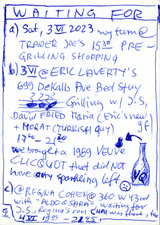 WAITING FOR
a) Sat, 3 VI 2023 my turn @
TRADER JOE's 15:30 PRE-
GRILLING SHOPPING
b) 3 VI @ ERIC LAVERTY's
699 DeKalb Ave Bed Stuy
Grilling w/ J-S,
DAVID FRIED Maria (Eric's new gf
+ MORAT (TURKISH guy)
17:00 - 21:30
we brought a 1989 VEUVE
CLICQUOT that did NOT
have any sparkling left
c) @ REGINA COHEN @ 360 W 43rd
with "ALDO & SARA", waiting for
J-S, Regina's son
4 VI